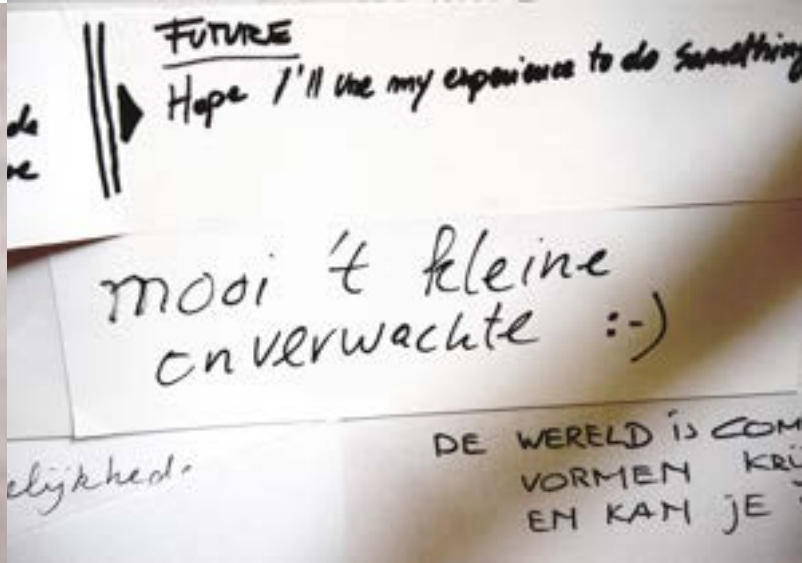 FUTURE
Hope I'll use my experience to do something
de
mooi 't kleine
onverwachte :-)
elijkheid.
DE WERELD is COM
VORMEN KRIJ
EN KAN JE